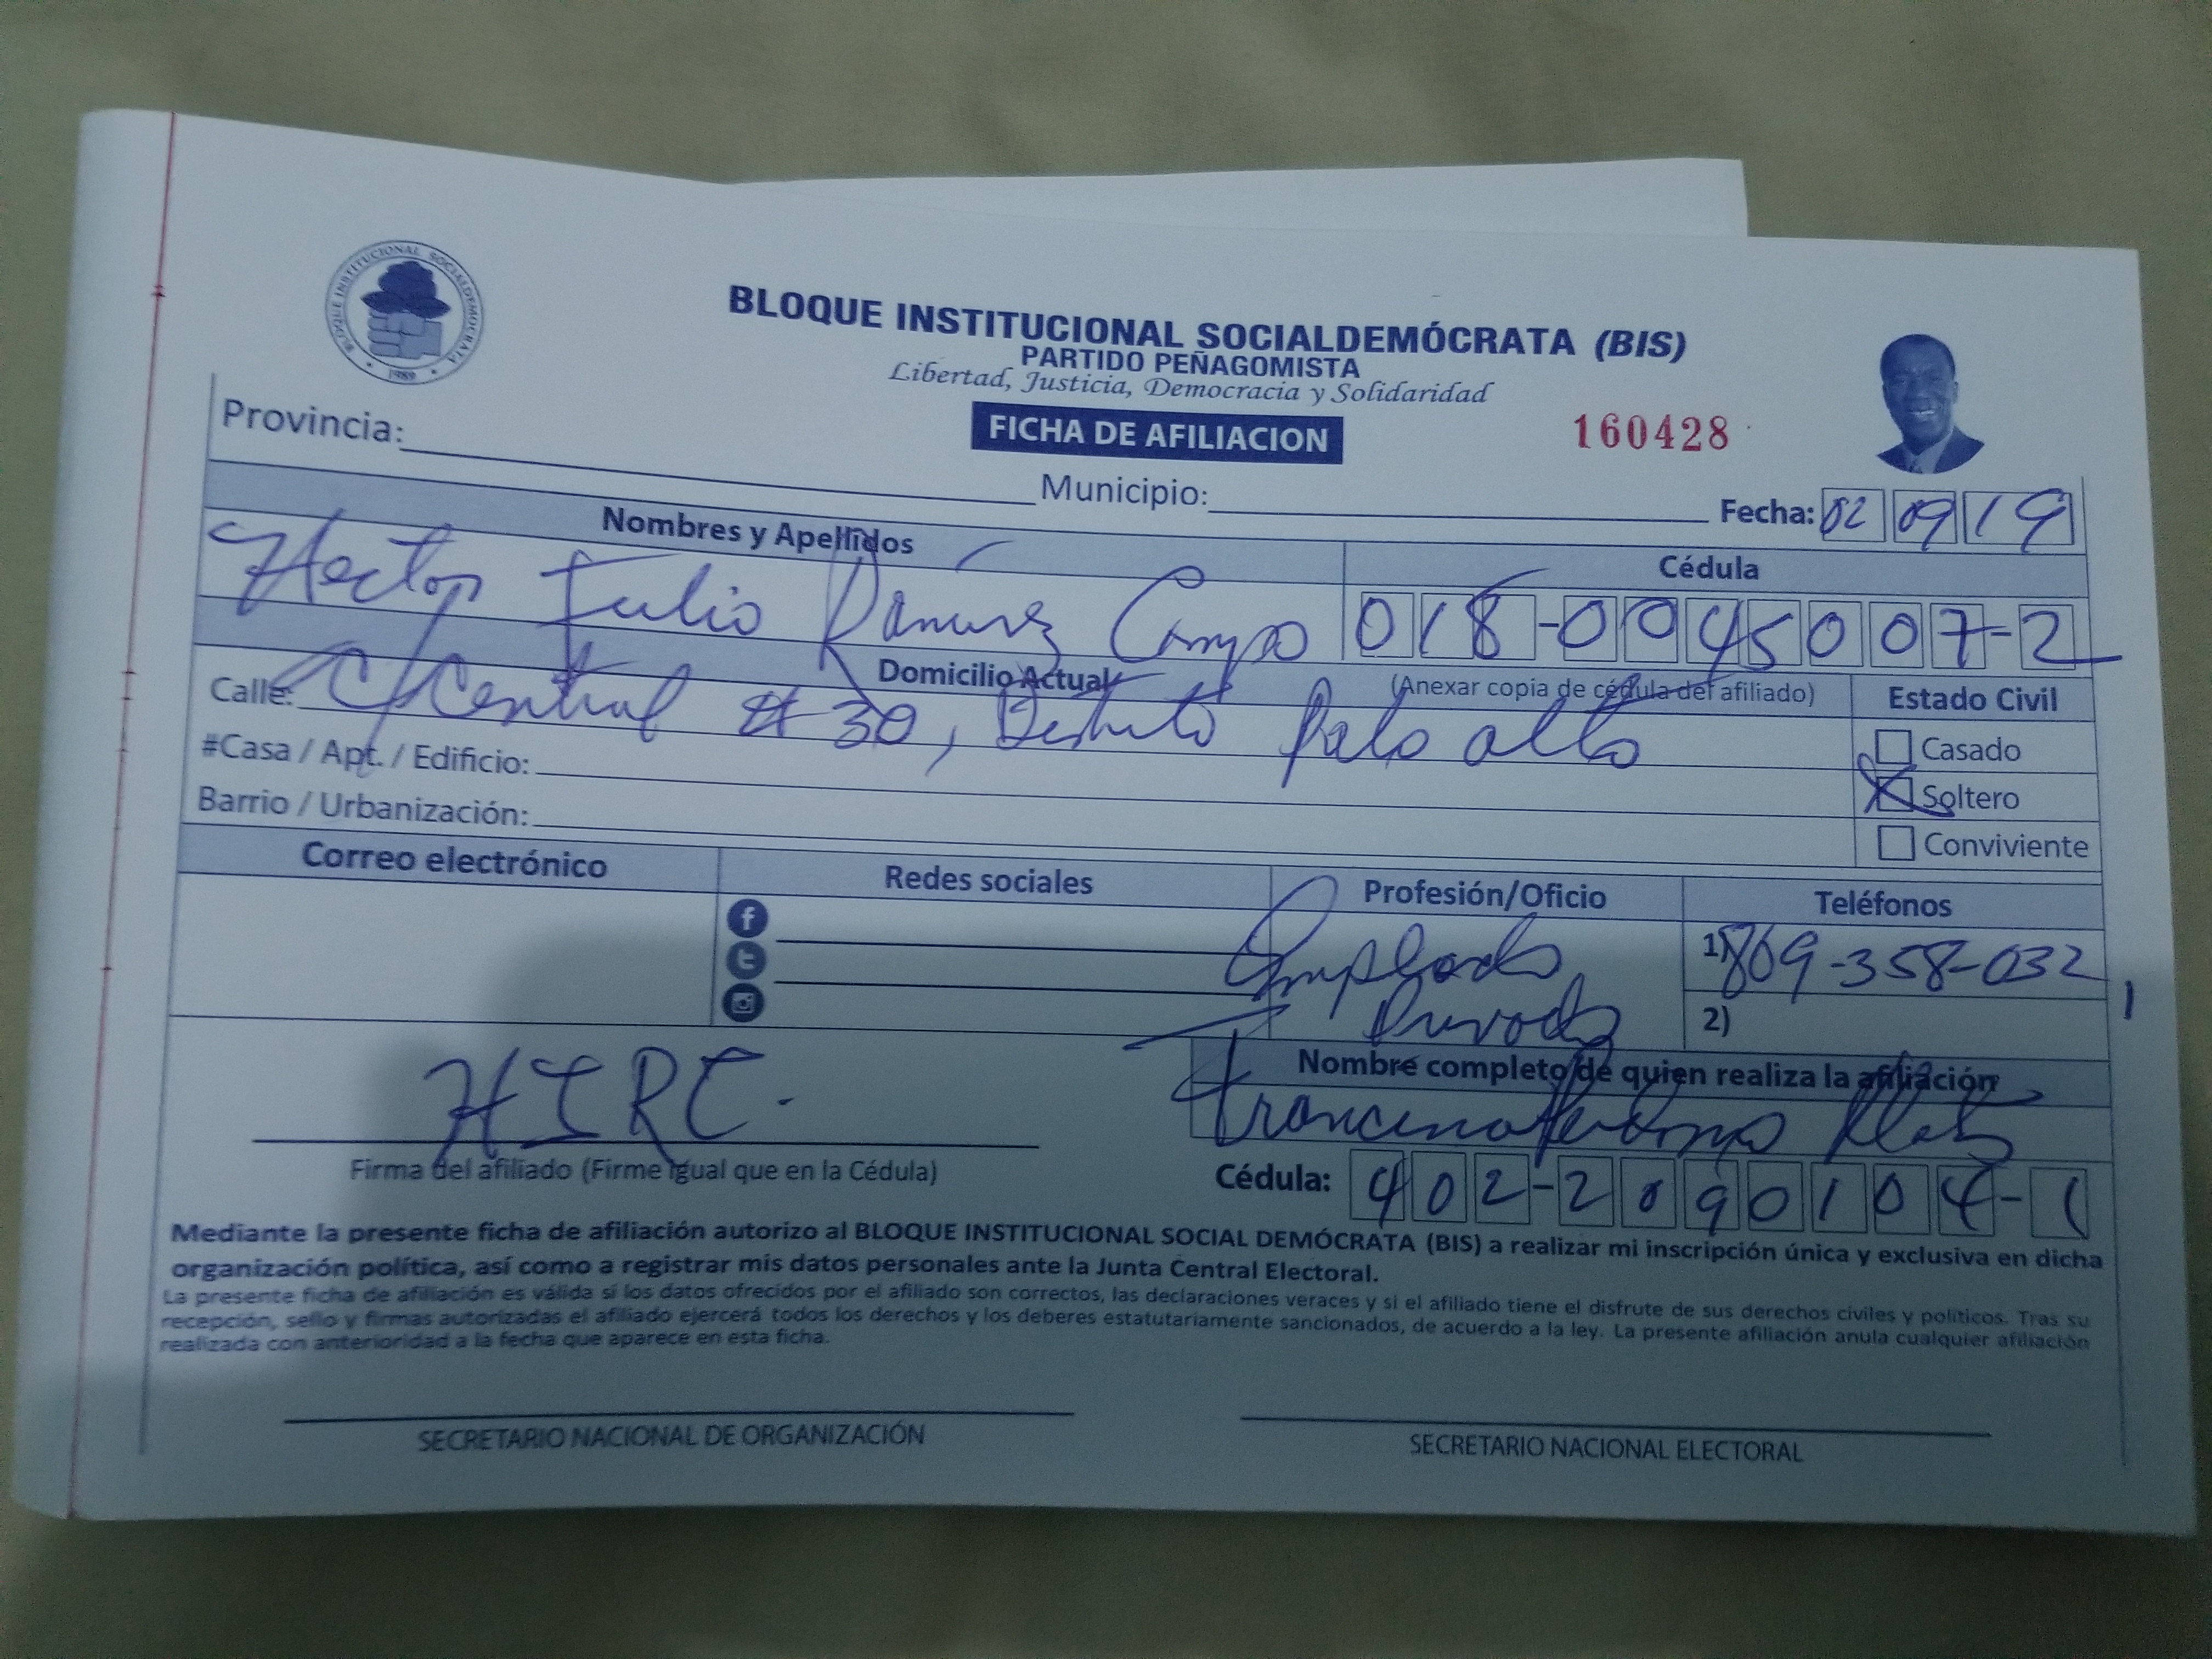 BLOQUE INSTITUCIONAL SOCIALDEMOCRATA
1989
BLOQUE INSTITUCIONAL SOCIALDEMÓCRATA (BIS)
PARTIDO PEÑAGOMISTA
Libertad, Justicia, Democracia y Solidaridad
FICHA DE AFILIACION
160428
Provincia:
Municipio:
Fecha: 02 09 19
Nombres y Apellidos
Cédula
Hector Julio Ramirez Campo
018-0045007-2
Domicilio Actual
(Anexar copia de cédula del afiliado)
Estado Civil
Calle: C/Central # 30, Distrito Palo alto
Casado
#Casa / Apt. / Edificio:
Soltero
Barrio / Urbanización:
Conviviente
Correo electrónico
Redes sociales
Profesión/Oficio
Teléfonos
Empleado
Privado
1) 809-358-032
1
2)
HJRC.
Firma del afiliado (Firme igual que en la Cédula)
Nombre completo de quien realiza la afiliación
Cédula: 402-2090104-1
Mediante la presente ficha de afiliación autorizo al BLOQUE INSTITUCIONAL SOCIAL DEMÓCRATA (BIS) a realizar mi inscripción única y exclusiva en dicha
organización política, así como a registrar mis datos personales ante la Junta Central Electoral.
La presente ficha de afiliación es válida si los datos ofrecidos por el afiliado son correctos, las declaraciones veraces y si el afiliado tiene el disfrute de sus derechos civiles y políticos. Tras su
recepción, sello y firmas autorizadas el afiliado ejercerá todos los derechos y los deberes estatutariamente sancionados, de acuerdo a la ley. La presente afiliación anula cualquier afiliación
realizada con anterioridad a la fecha que aparece en esta ficha.
SECRETARIO NACIONAL DE ORGANIZACIÓN
SECRETARIO NACIONAL ELECTORAL